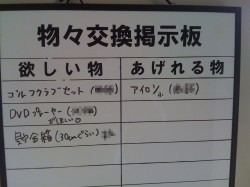 物々交換掲示板
欲しい物 あげれる物
ゴルフクラブセット アイロン
DVDプレーヤー
がほしい
貯金箱(30cmぐらい)